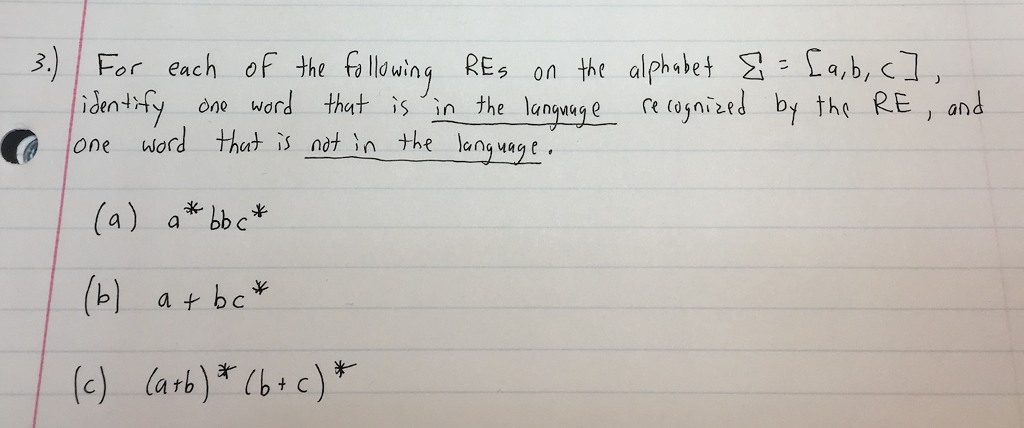 3.) For each of the following REs on the alphabet Σ = [a,b,c],
identify one word that is in the language recognized by the RE, and
one word that is not in the language.
(a) a*bbc*
(b) a + bc*
(c) (a+b)*(b+c)*